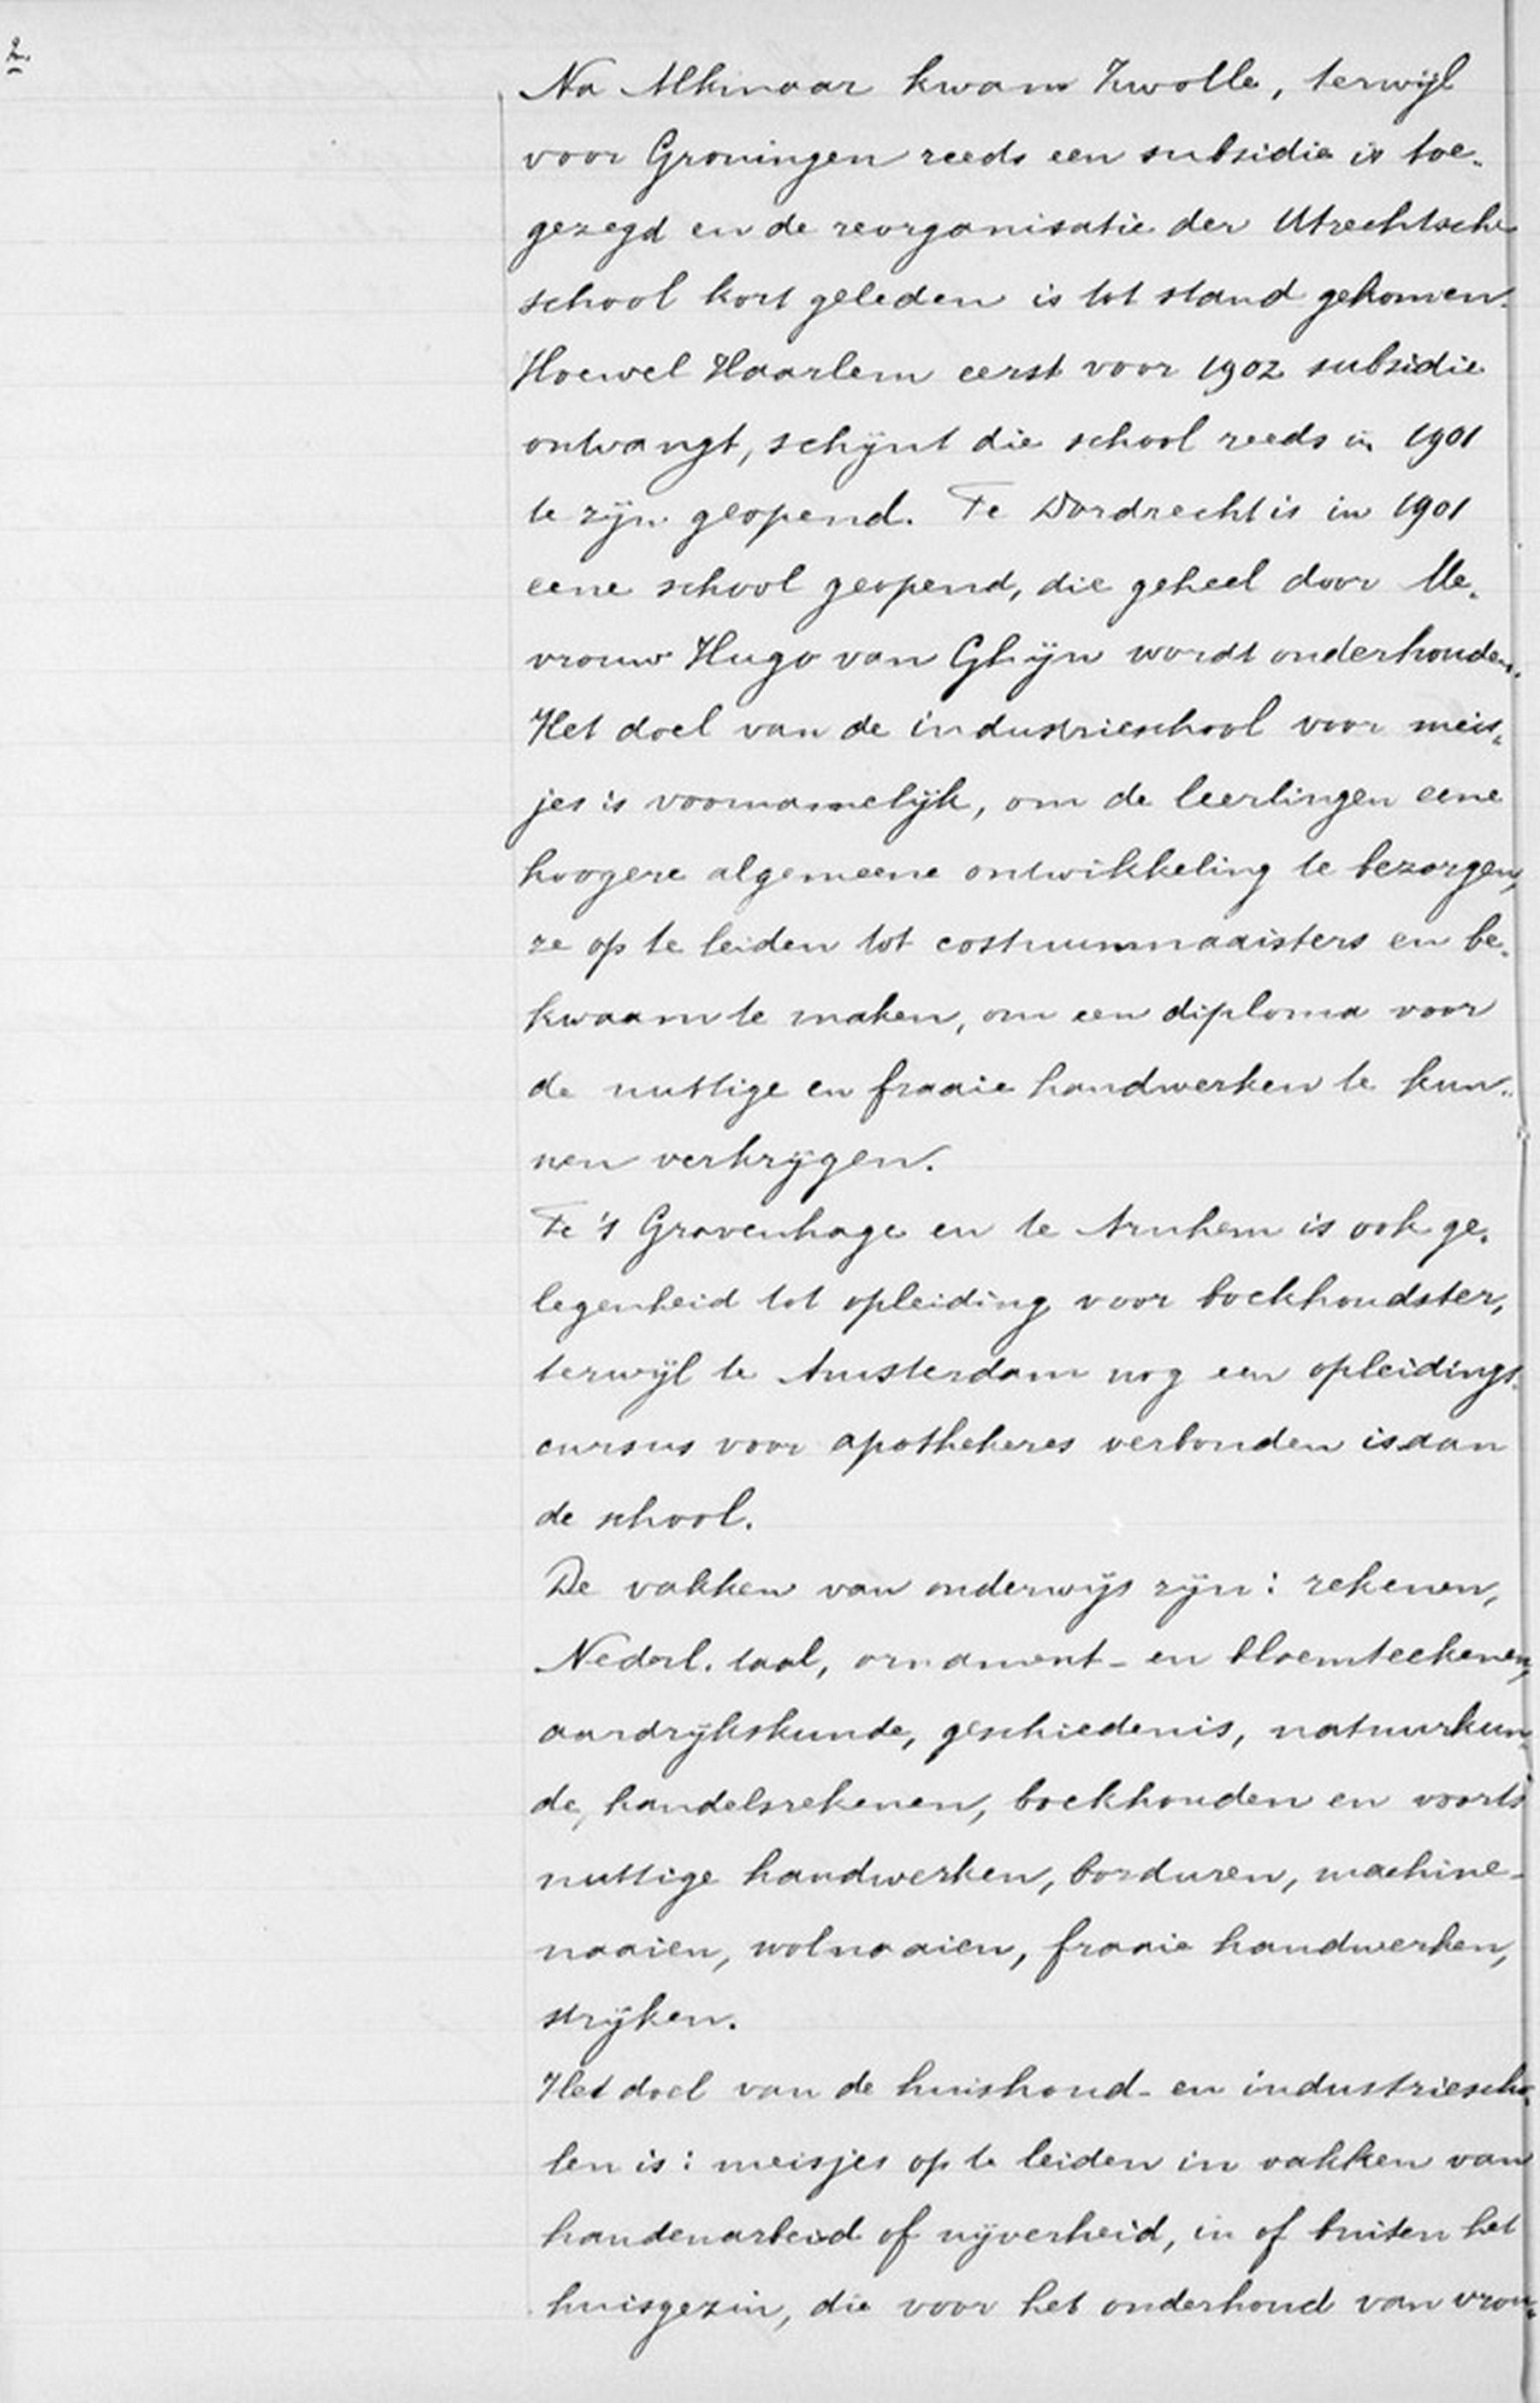 2.
Na Alkmaar kwam Zwolle, terwijl
voor Groningen reeds een subsidie is toe-
gezegd en de reorganisatie der Utrechtsche
school kort geleden is tot stand gekomen.
Hoewel Haarlem eerst voor 1902 subsidie
ontvangt, schijnt die school reeds in 1901
te zijn geopend. Te Dordrecht is in 1901
eene school geopend, die geheel door Me-
vrouw Hugo van Ghijn wordt onderhouden.
Het doel van de industrieschool voor meis-
jes is voornamelijk, om de leerlingen eene
hoogere algemeene ontwikkeling te bezorgen,
ze op te leiden tot costuumnaaisters en be-
kwaam te maken, om een diploma voor
de nuttige en fraaie handwerken te kun-
nen verkrijgen.
Te 's Gravenhage en te Arnhem is ook ge-
legenheid tot opleiding voor boekhoudster,
terwijl te Amsterdam nog een opleidings-
cursus voor apothekeres verbonden is aan
de school.
De vakken van onderwijs zijn: rekenen,
Nederl. taal, ornament- en bloemteekenen,
aardrijkskunde, geschiedenis, natuurkun-
de, handelsrekenen, boekhouden en voorts
nuttige handwerken, borduren, machine-
naaien, wolnaaien, fraaie handwerken,
strijken.
Het doel van de huishoud- en industriescho-
len is: meisjes op te leiden in vakken van
handenarbeid of nijverheid, in of buiten het
huisgezin, die voor het onderhoud van vrou-